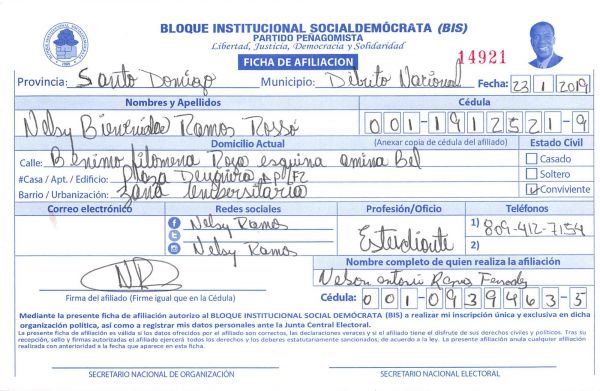 BLOQUE INSTITUCIONAL SOCIALDEMÓCRATA (BIS)
PARTIDO PEÑAGOMISTA
Libertad, Justicia, Democracia y Solidaridad
FICHA DE AFILIACION
14921
Provincia: Santo Domingo Municipio: Distrito Nacional Fecha: 23 1 2019
Nombres y Apellidos Cédula
Nelsy Bienvenida Ramos Rossó 001-1912521-9
Domicilio Actual (Anexar copia de cédula del afiliado) Estado Civil
Calle: filomena Rojo esquina amina Bel Casado
#Casa / Apt. / Edificio: Plaza Soltero
Barrio / Urbanización: zona Universitaria Conviviente
Correo electrónico Redes sociales Profesión/Oficio Teléfonos
Nelsy Ramos Estudiante 1) 809-412-7154
Nelsy Ramos 2)
Nombre completo de quien realiza la afiliación
NR Nelson antonio Ramos
Firma del afiliado (Firme igual que en la Cédula) Cédula: 001-0939463-5
Mediante la presente ficha de afiliación autorizo al BLOQUE INSTITUCIONAL SOCIAL DEMÓCRATA (BIS) a realizar mi inscripción única y exclusiva en dicha
organización política, así como a registrar mis datos personales ante la Junta Central Electoral.
La presente ficha de afiliación es valida si los datos ofrecidos por el afiliado son correctos, las declaraciones veraces y si el afiliado tiene el disfrute de sus derechos civiles y políticos. Tras su
recepción, sello y firmas autorizadas el afiliado ejercerá todos los derechos y los deberes estatutariamente sancionados, de acuerdo a la ley. La presente afiliación anula cualquier afiliación
realizada con anterioridad a la fecha que aparece en esta ficha.
SECRETARIO NACIONAL DE ORGANIZACIÓN SECRETARIO NACIONAL ELECTORAL